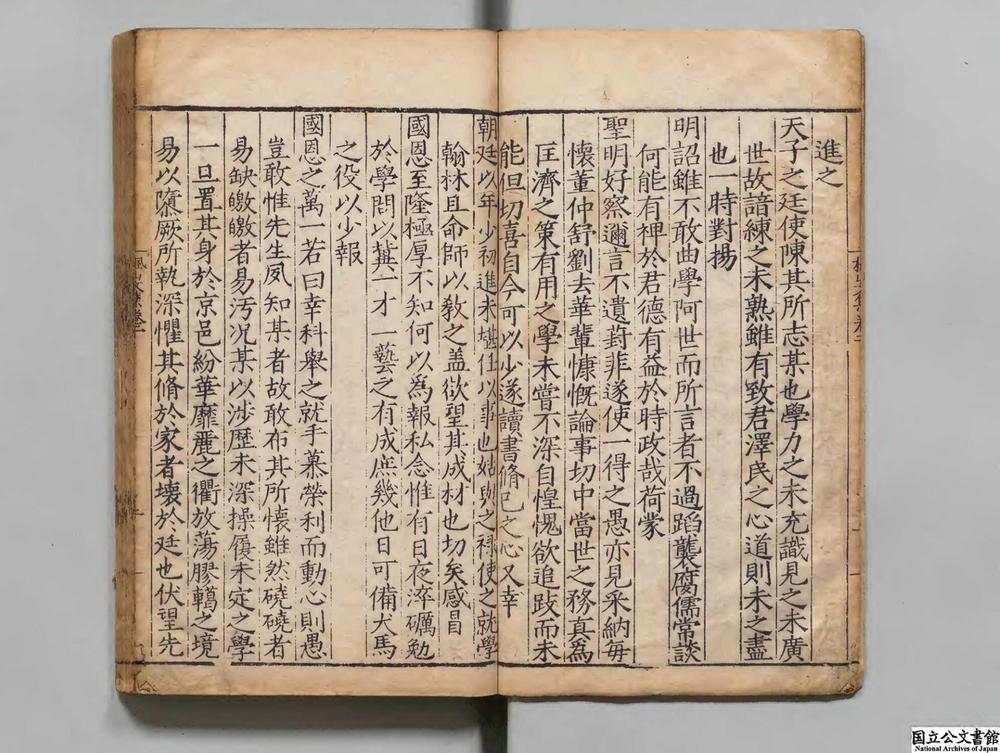 進之
天子之廷使陳其所志某也學力之未充識見之未廣
世故諳練之未熟雖有致君澤民之心道則未之盡
也一時對揚
明詔雖不敢曲學阿世而所言者不過蹈襲腐儒常談
何能有裨於君德有益於時政哉荷蒙
聖明好察邇言不遺葑菲遂使一得之愚亦見采納毎
懷董仲舒劉去華輩慷慨論事切中當世之務真為
匡濟之策有用之學未嘗不深自惶愧欲追跂而未
能但切喜自今可以少遂讀書脩己之心又幸
朝廷以年少初進未堪任以事也姑與之禄使之就學
翰林且命師以教之盖欲望其成材也切矣感冒
國恩至隆極厚不知何以爲報私念惟有日夜淬礪勉
於學問以冀一才一藝之有成庶幾他日可備犬馬
之役以少報
國恩之萬一若曰幸科舉之就手慕榮利而動心則愚
豈敢惟先生夙知某者故敢布其所懷雖然磽磽者
易缺皦皦者易汚况某以涉歷未深操履未定之學
一旦置其身於京邑紛華靡麗之衢放蕩膠轕之境
易以隳厥所執深懼其脩於家者壊於廷也伏望先
国立公文書館
National Archives of Japan